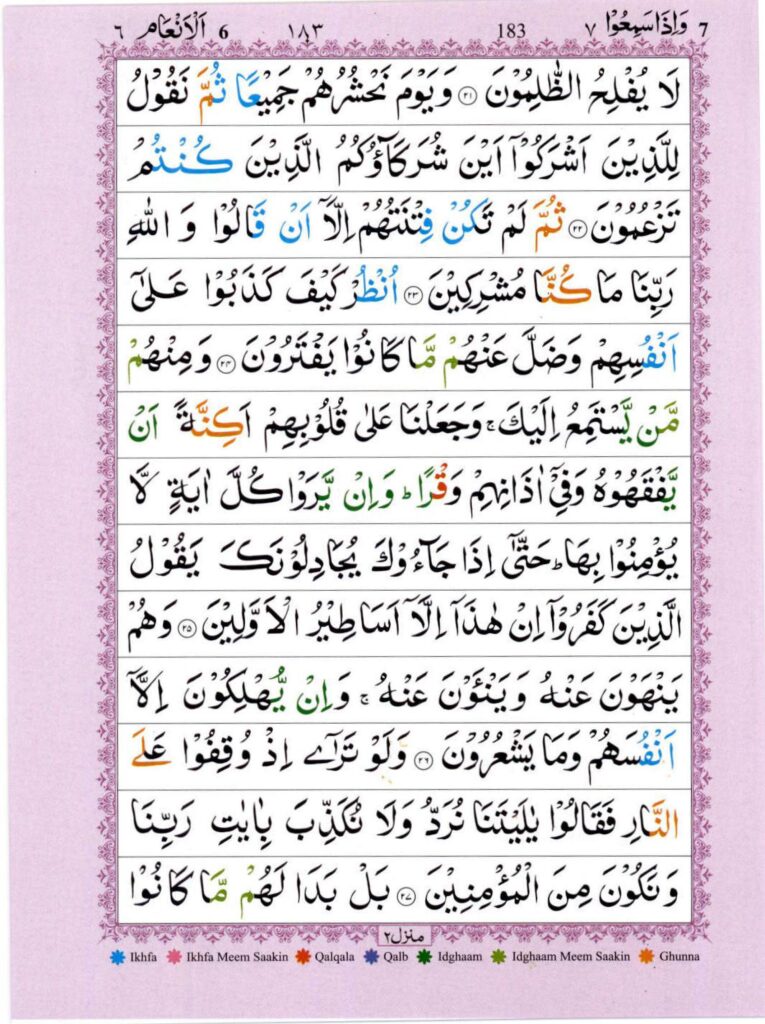 7 وَاِذَاسَمِعُوْا ٧ 183 ١٨٣ 6 اَلْاَنْعَام ٦
لَا يُفْلِحُ الظّٰلِمُوْنَ ۝٢١ وَيَوْمَ نَحْشُرُهُمْ جَمِيْعًا ثُمَّ نَقُوْلُ
لِلَّذِيْنَ اَشْرَكُوْٓا اَيْنَ شُرَكَآؤُكُمُ الَّذِيْنَ كُنْتُمْ
تَزْعُمُوْنَ ۝٢٢ ثُمَّ لَمْ تَكُنْ فِتْنَتُهُمْ اِلَّآ اَنْ قَالُوْا وَ اللّٰهِ
رَبِّنَا مَا كُنَّا مُشْرِكِيْنَ ۝٢٣ اُنْظُرْ كَيْفَ كَذَبُوْا عَلٰٓى
اَنْفُسِهِمْ وَضَلَّ عَنْهُمْ مَّا كَانُوْا يَفْتَرُوْنَ ۝٢٤ وَمِنْهُمْ
مَّنْ يَّسْتَمِعُ اِلَيْكَ ۚ وَجَعَلْنَا عَلٰى قُلُوْبِهِمْ اَكِنَّةً اَنْ
يَّفْقَهُوْهُ وَفِيْٓ اٰذَانِهِمْ وَقْرًا ؕ وَاِنْ يَّرَوْا كُلَّ اٰيَةٍ لَّا
يُؤْمِنُوْا بِهَا ؕ حَتّٰٓى اِذَا جَآءُوْكَ يُجَادِلُوْنَكَ يَقُوْلُ
الَّذِيْنَ كَفَرُوْٓا اِنْ هٰذَآ اِلَّآ اَسَاطِيْرُ الْاَوَّلِيْنَ ۝٢٥ وَهُمْ
يَنْهَوْنَ عَنْهُ وَيَنْئَوْنَ عَنْهُ ۚ وَاِنْ يُّهْلِكُوْنَ اِلَّآ
اَنْفُسَهُمْ وَمَا يَشْعُرُوْنَ ۝٢٦ وَلَوْ تَرٰٓى اِذْ وُقِفُوْا عَلَى
النَّارِ فَقَالُوْا يٰلَيْتَنَا نُرَدُّ وَلَا نُكَذِّبَ بِاٰيٰتِ رَبِّنَا
وَنَكُوْنَ مِنَ الْمُؤْمِنِيْنَ ۝٢٧ بَلْ بَدَا لَهُمْ مَّا كَانُوْا
منزل٢
Ikhfa Ikhfa Meem Saakin Qalqala Qalb Idghaam Idghaam Meem Saakin Ghunna